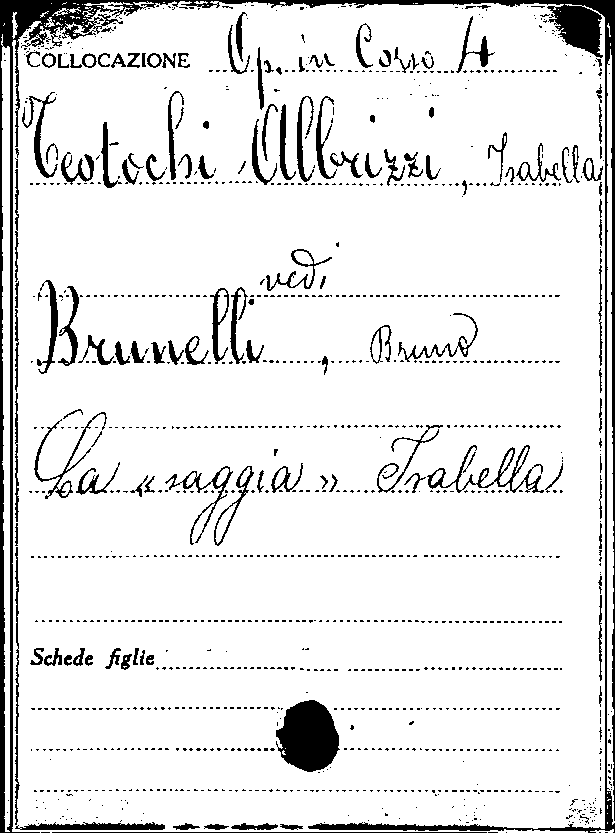 COLLOCAZIONE Op. in Corso 4
Teotochi Albrizzi, Isabella
vedi
Brunelli, Bruno
La «saggia» Isabella
Schede figlie